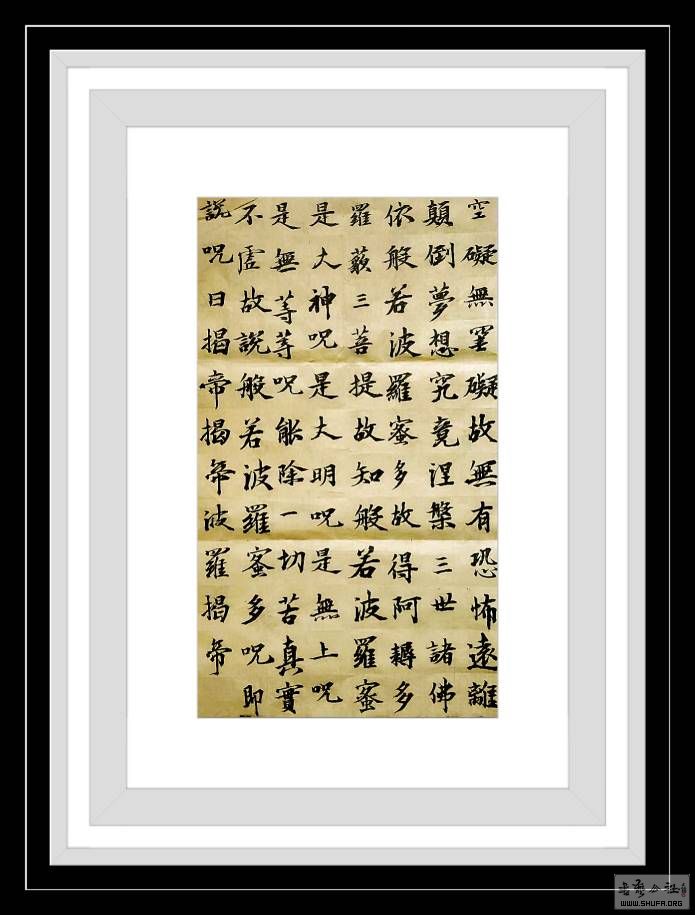 空礙無罣礙故無有恐怖遠離
顛倒夢想究竟涅槃三世諸佛
依般若波羅蜜多故得阿耨多
羅藐三菩提故知般若波羅蜜
是大神呪是大明呪是無上呪
是無等等呪能除一切苦真實
不虛故說般若波羅蜜多呪即
說呪曰揭帝揭帝波羅揭帝
书艺公社
WWW.SHUFA.ORG